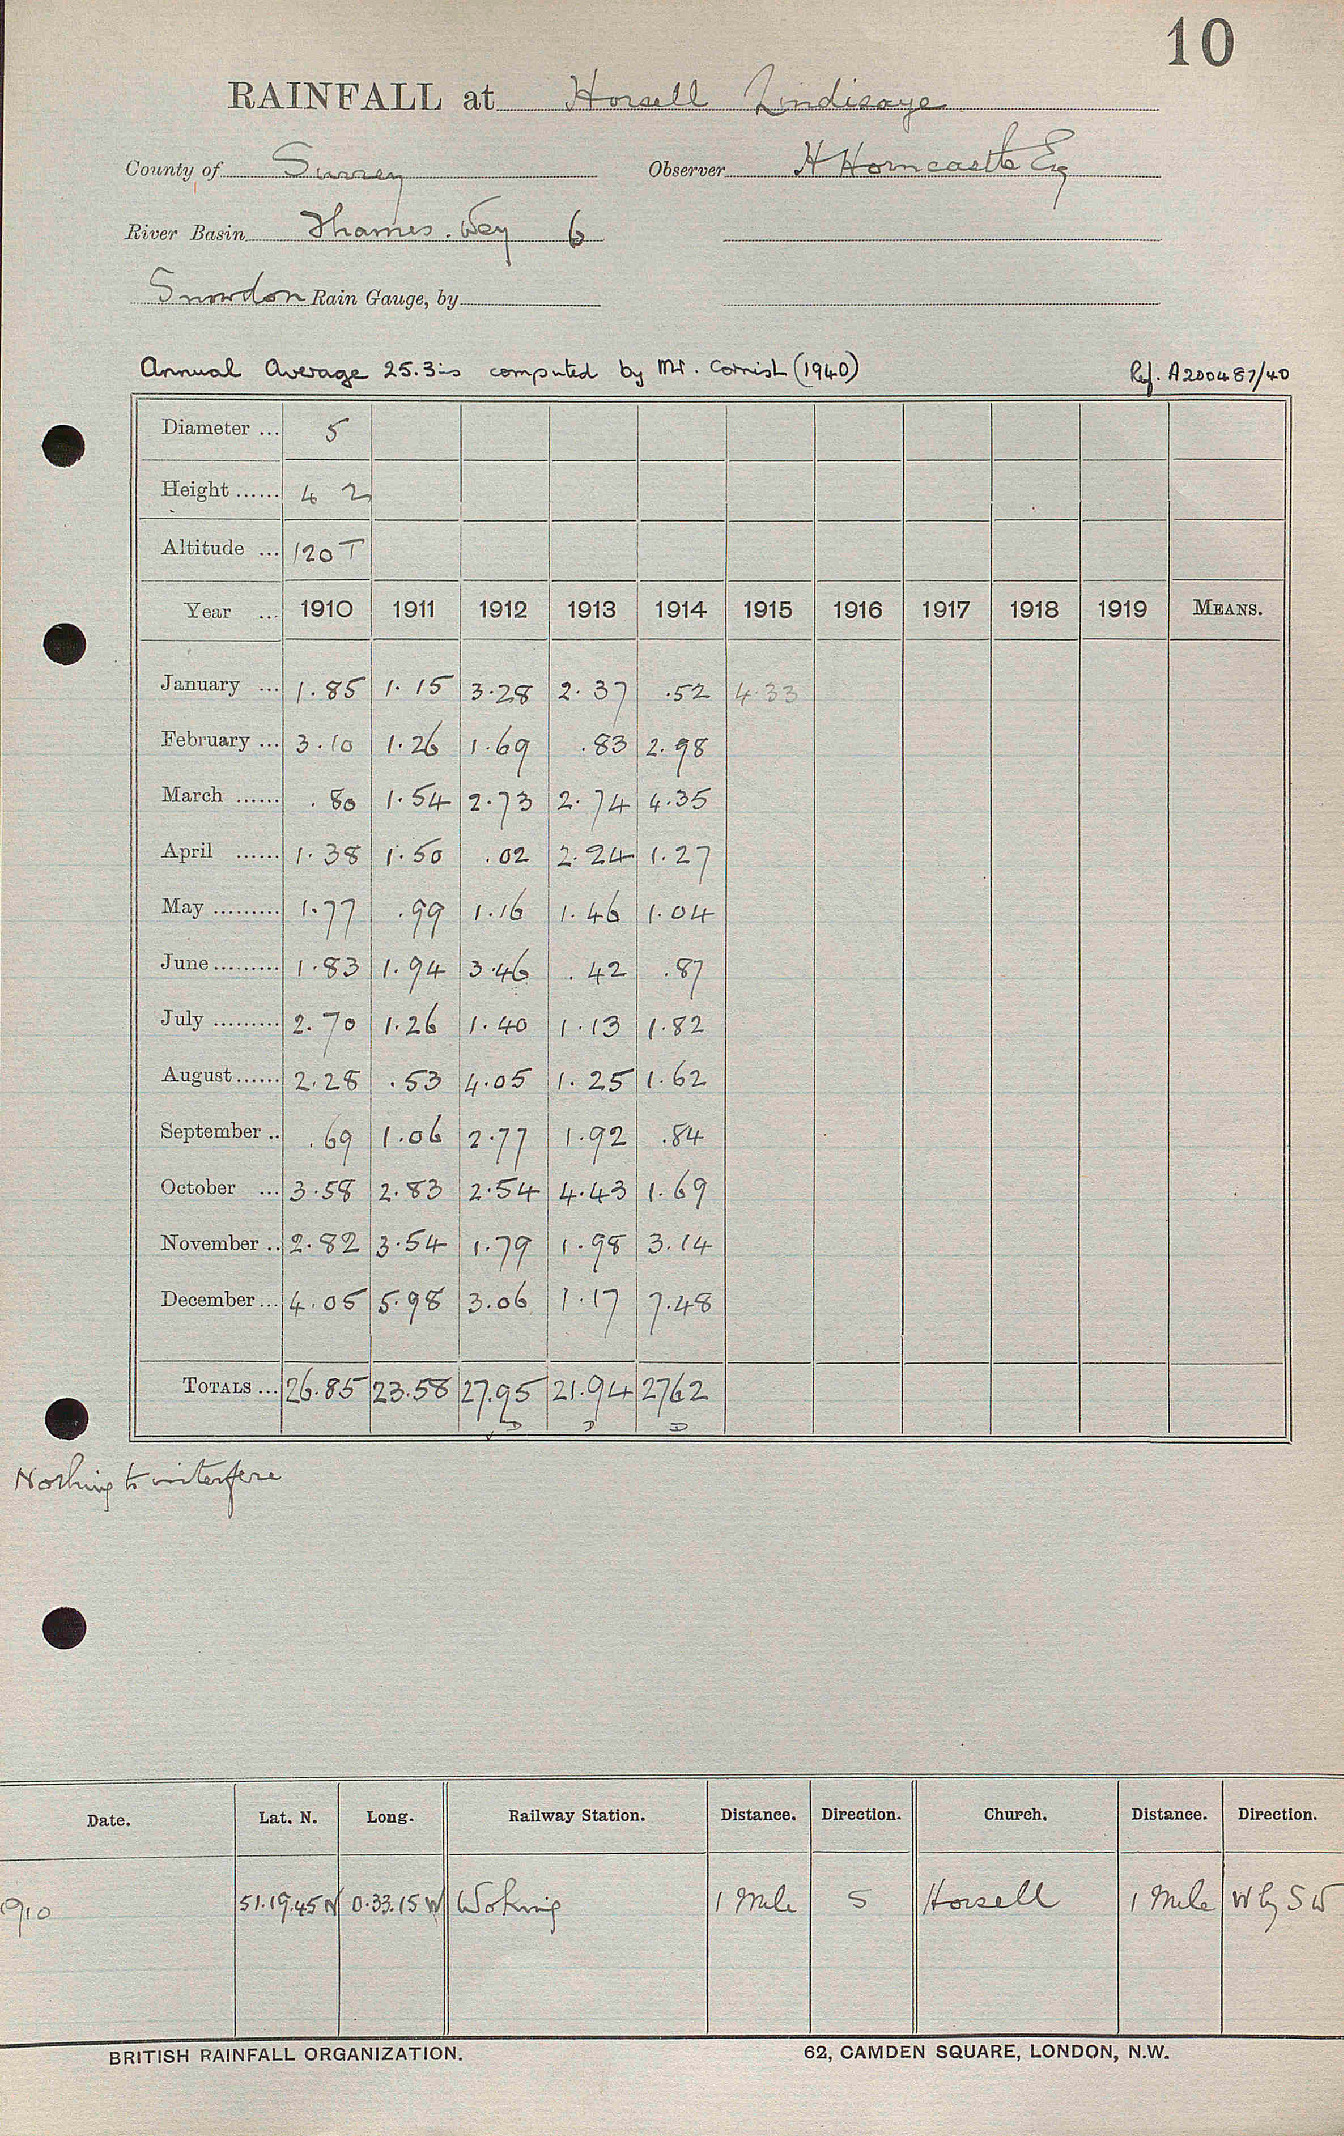 10
RAINFALL at Horsell Lindisaye
County of Surrey Observer H Horncastle Esq
River Basin Thames. Wey 6
Snowdon Rain Gauge, by
Annual Average 25.3 ins computed by Mr. Cornish (1940) Ref. A200487/40
Diameter ... 5
Height ...... 4 2
Altitude ... 120 T
Year ... 1910 1911 1912 1913 1914 1915 1916 1917 1918 1919 MEANS.
January ... 1.85 1.15 3.28 2.37 .52 4.33
February ... 3.10 1.26 1.69 .83 2.98
March ...... .80 1.54 2.73 2.74 4.35
April ...... 1.38 1.50 .02 2.24 1.27
May ......... 1.77 .99 1.16 1.46 1.04
June ......... 1.83 1.94 3.46 .42 .87
July ......... 2.70 1.26 1.40 1.13 1.82
August...... 2.28 .53 4.05 1.25 1.62
September .. .69 1.06 2.77 1.92 .84
October ... 3.58 2.83 2.54 4.43 1.69
November .. 2.82 3.54 1.79 1.98 3.14
December ... 4.05 5.98 3.06 1.17 7.48
TOTALS ... 26.85 23.58 27.95 21.94 2762
Nothing to interfere
Date. Lat. N. Long. Railway Station. Distance. Direction. Church. Distance. Direction.
1910 51.19.45 N 0.33.15 W Woking 1 Mile S Horsell 1 Mile W by S W
BRITISH RAINFALL ORGANIZATION. 62, CAMDEN SQUARE, LONDON, N.W.